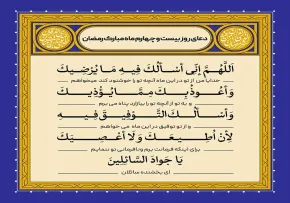 دعای روز بیست و چهارم ماه مبارک رمضان
اَللّهُمَّ اِنّی اَسْأَلُكَ فیهِ ما یُرْضیكَ
خدایا من از تو در این ماه آنچه تو را خوشنود کند میخواهم
وَ اَعُوذُ بِكَ مِمّا یُؤْذیكَ
و به تو از آنچه تو را بیازارد پناه می برم
وَ اَسْأَلُكَ التَّوْفیقَ فیهِ
و از تو توفیق در این ماه می خواهم
لِاَنْ اُطیعَكَ وَ لا اَعْصِیَكَ
برای اینکه فرمانت برم و نافرمانی تو ننمایم
یا جَوادَ السّائِلینَ
ای بخشنده سائلان